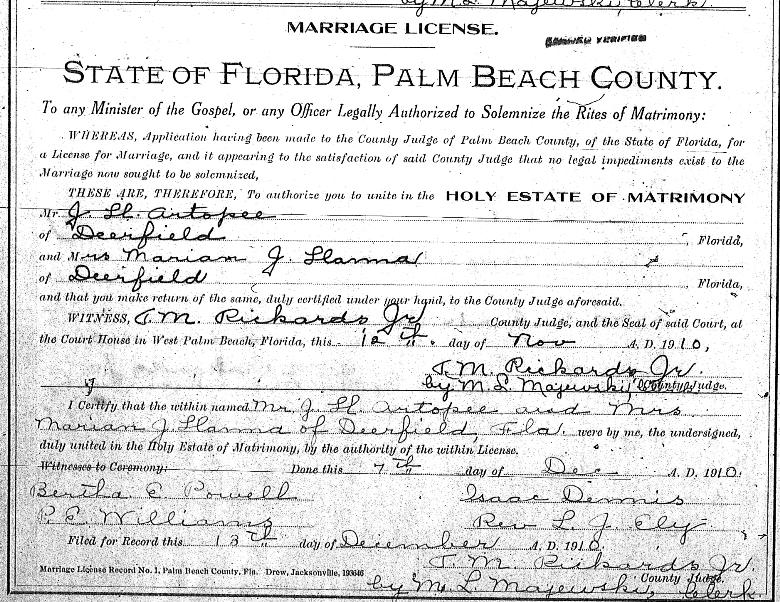 by M L Majewski, Clerk.
MARRIAGE LICENSE.
STATE OF FLORIDA, PALM BEACH COUNTY.
To any Minister of the Gospel, or any Officer Legally Authorized to Solemnize the Rites of Matrimony:
WHEREAS, Application having been made to the County Judge of Palm Beach County, of the State of Florida, for
a License for Marriage, and it appearing to the satisfaction of said County Judge that no legal impediments exist to the
Marriage now sought to be solemnized,
THESE ARE, THEREFORE, To authorize you to unite in the HOLY ESTATE OF MATRIMONY
Mr. J. H. Artopee
of Deerfield, Florida,
and Mrs Mariam J. Hanna
of Deerfield, Florida,
and that you make return of the same, duly certified under your hand, to the County Judge aforesaid.
WITNESS, T. M. Rickards Jr County Judge, and the Seal of said Court, at
the Court House in West Palm Beach, Florida, this 12th. day of Nov A. D. 1910,
T. M. Rickards Jr.
by M. L. Majewski, County Judge.
I Certify that the within named Mr. J. H. Artopee and Mrs
Mariam J. Hanna of Deerfield, Fla. were by me, the undersigned,
duly united in the Holy Estate of Matrimony, by the authority of the within License.
Witnesses to Ceremony: Done this 7th day of Dec A. D. 1910.
Bertha E Powell Isaac Dennis
P. E. Williams Rev L. J. Ely
Filed for Record this 13th day of December A. D. 1910.
T. M. Rickards Jr.
Marriage License Record No. 1, Palm Beach County, Fla. Drew, Jacksonville, 193646 County Judge.
by M L Majewski, Clerk.